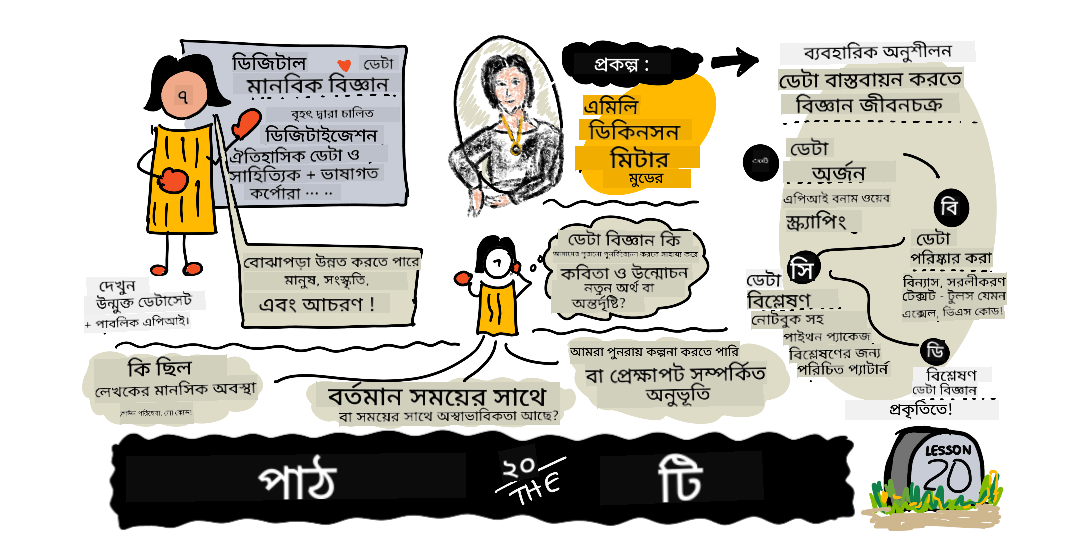 ডিজিটাল ডেটা
মানবিক বিজ্ঞান
বৃহৎ দ্বারা চালিত
ডিজিটাইজেশন
ঐতিহাসিক ডেটা ও
সাহিত্যিক + ভাষাগত
কর্পোরা ... ..
বোঝাপড়া উন্নত করতে পারে
মানুষ, সংস্কৃতি,
এবং আচরণ !
দেখুন
উন্মুক্ত ডেটাসেট
+ পাবলিক এপিআই।
প্রকল্প :
এমিলি
ডিকিনসন
মিটার
মুডের
ডেটা বিজ্ঞান কি
কবিতা ও উন্মোচন
নতুন অর্থ বা
অন্তর্দৃষ্টি?
ব্যবহারিক অনুশীলন
ডেটা বাস্তবায়ন করতে
বিজ্ঞান জীবনচক্র
ডেটা
অর্জন
এপিআই বনাম ওয়েব
স্ক্র্যাপিং
বি
ডেটা
পরিষ্কার করা
বিন্যাস, সরলীকরণ
টেক্সট - টুলস যেমন
এক্সেল, ভিএস কোড!
সি
ডেটা
বিশ্লেষণ
নোটবুক সহ
পাইথন প্যাকেজ
বিশ্লেষণের জন্য
পরিচিত প্যাটার্ন
ডি
বিশ্লেষণ
ডেটা বিজ্ঞান
প্রকৃতিতে!
কি ছিল
লেখকের মানসিক অবস্থা
বর্তমান সময়ের সাথে
বা সময়ের সাথে অস্বাভাবিকতা আছে?
আমরা পুনরায় কল্পনা করতে পারি
বা প্রেক্ষাপট সম্পর্কিত
অনুভূতি
পাঠ
২০
THE
টি
LESSON
20